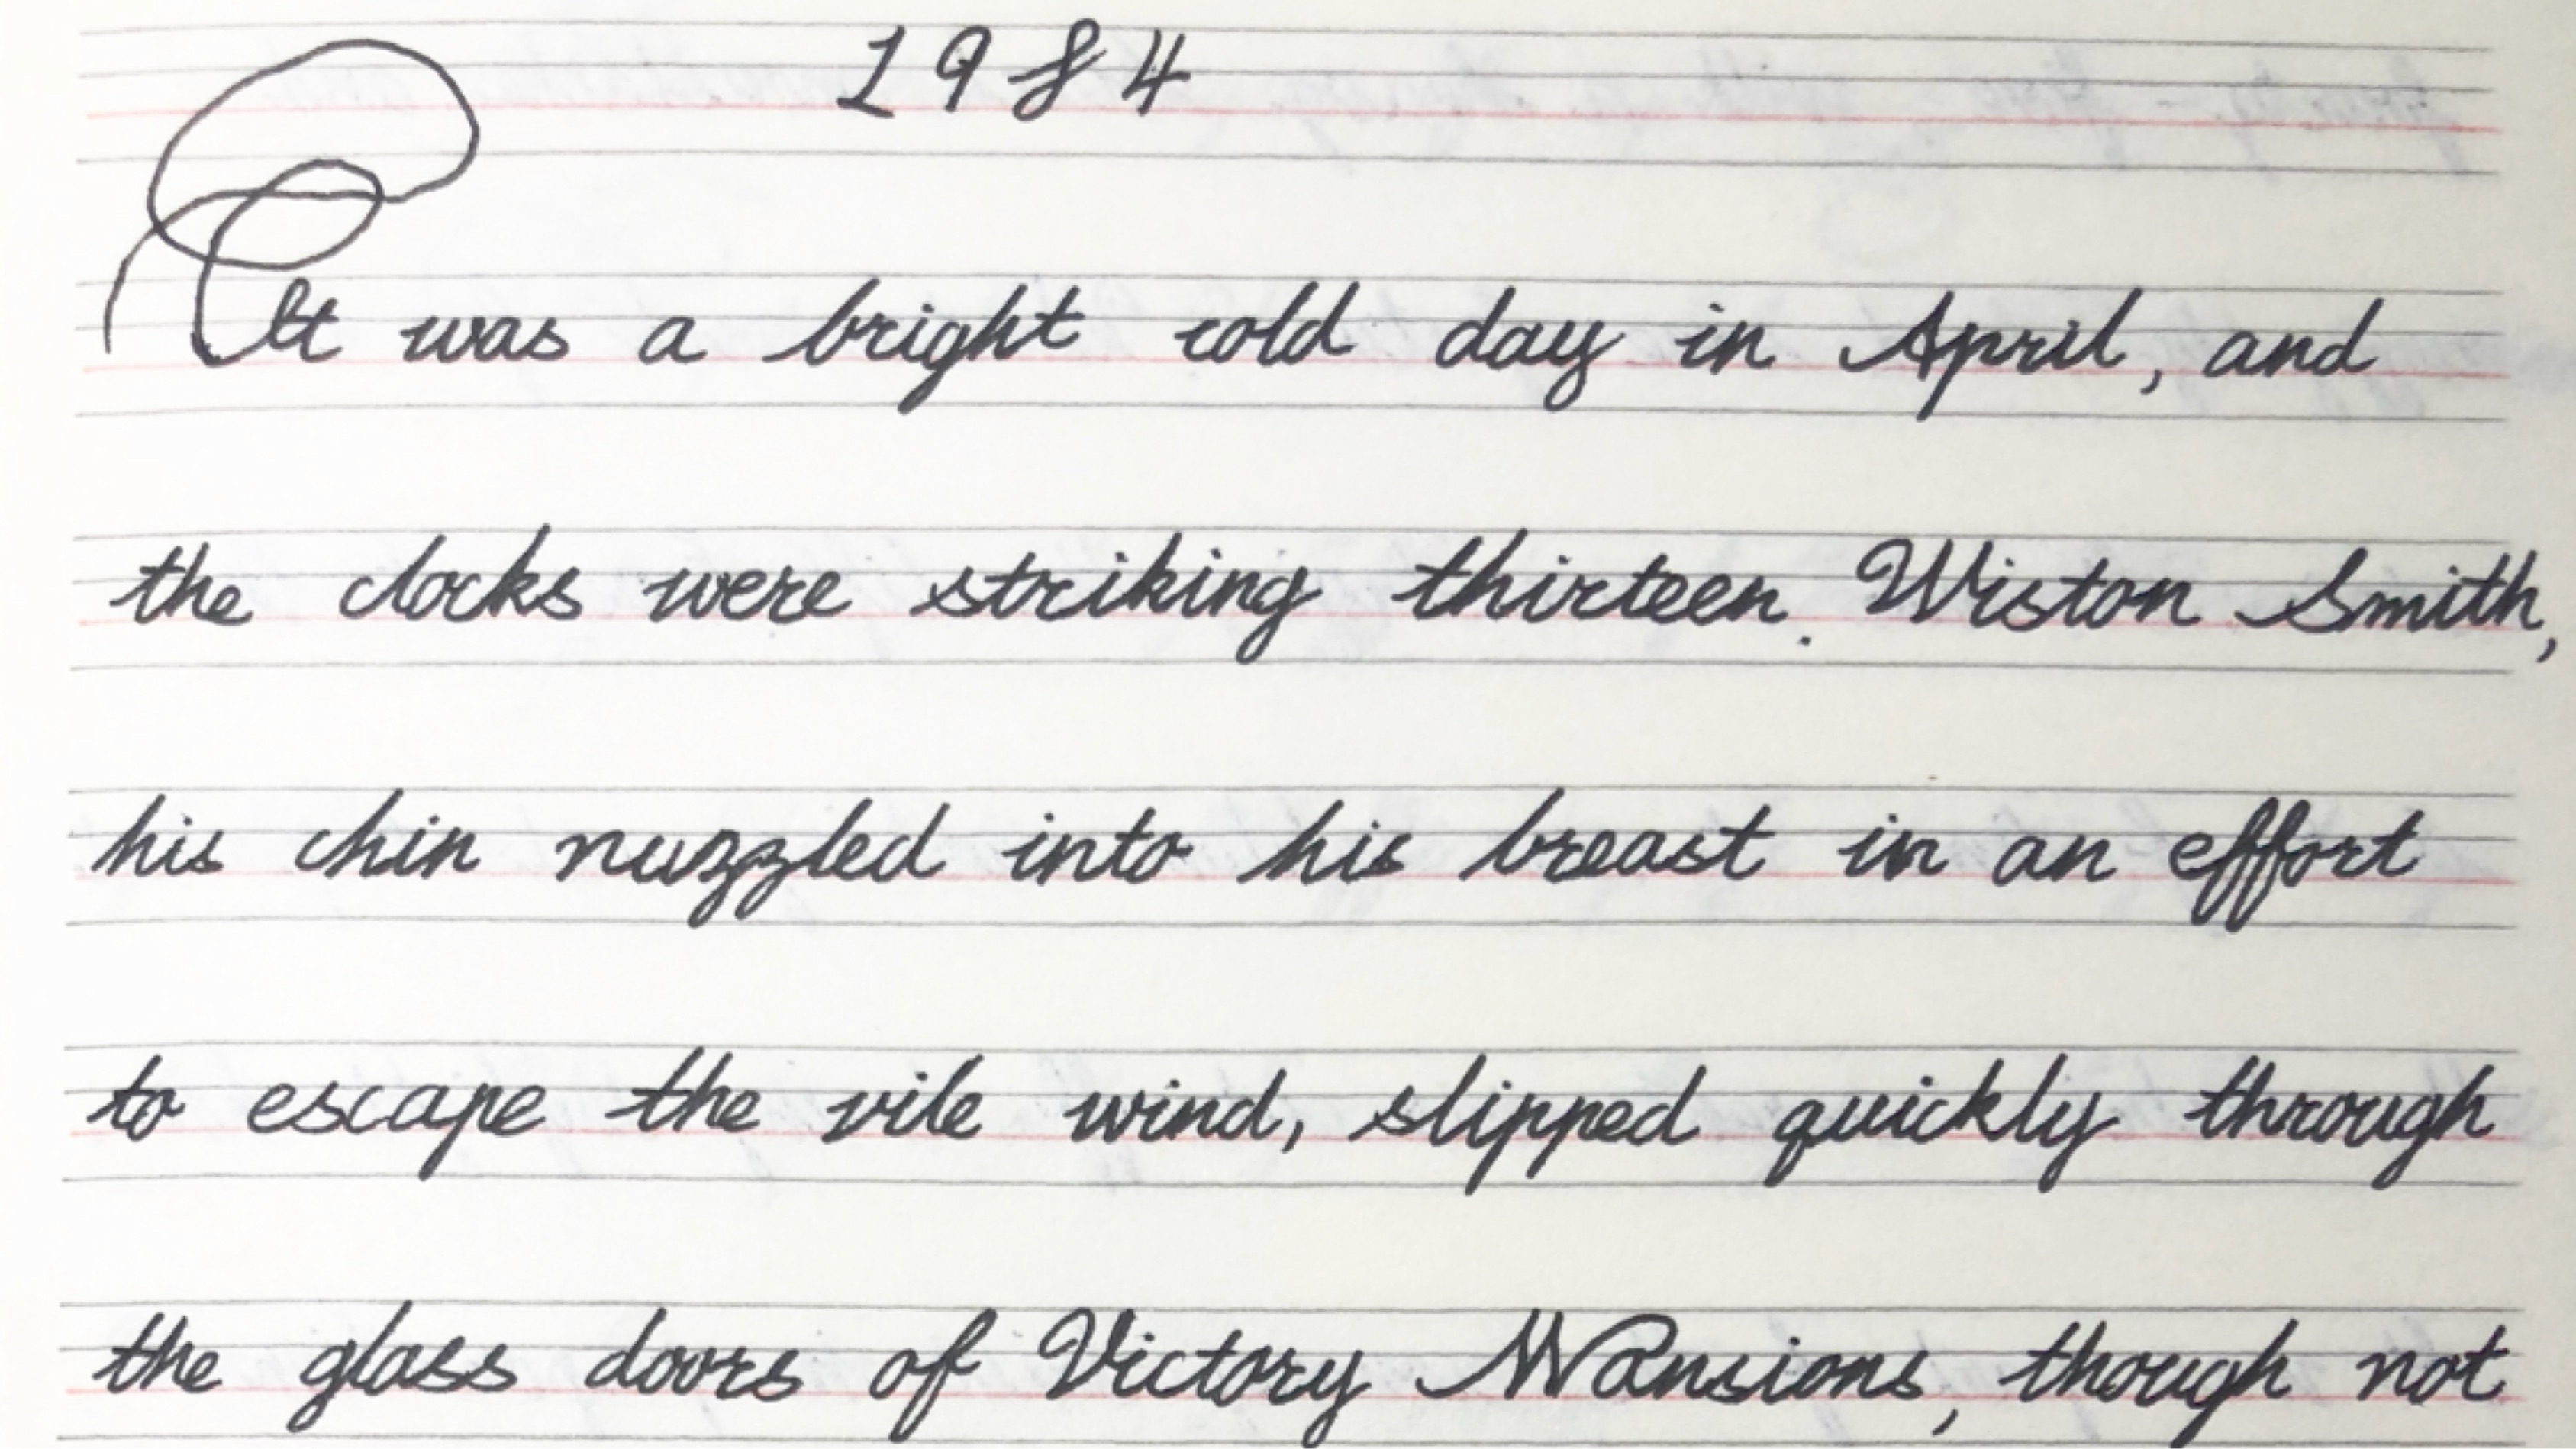 1984
It was a bright cold day in April, and
the clocks were striking thirteen. Wiston Smith,
his chin nuzzled into his breast in an effort
to escape the vile wind, slipped quickly through
the glass doors of Victory Mansions, though not